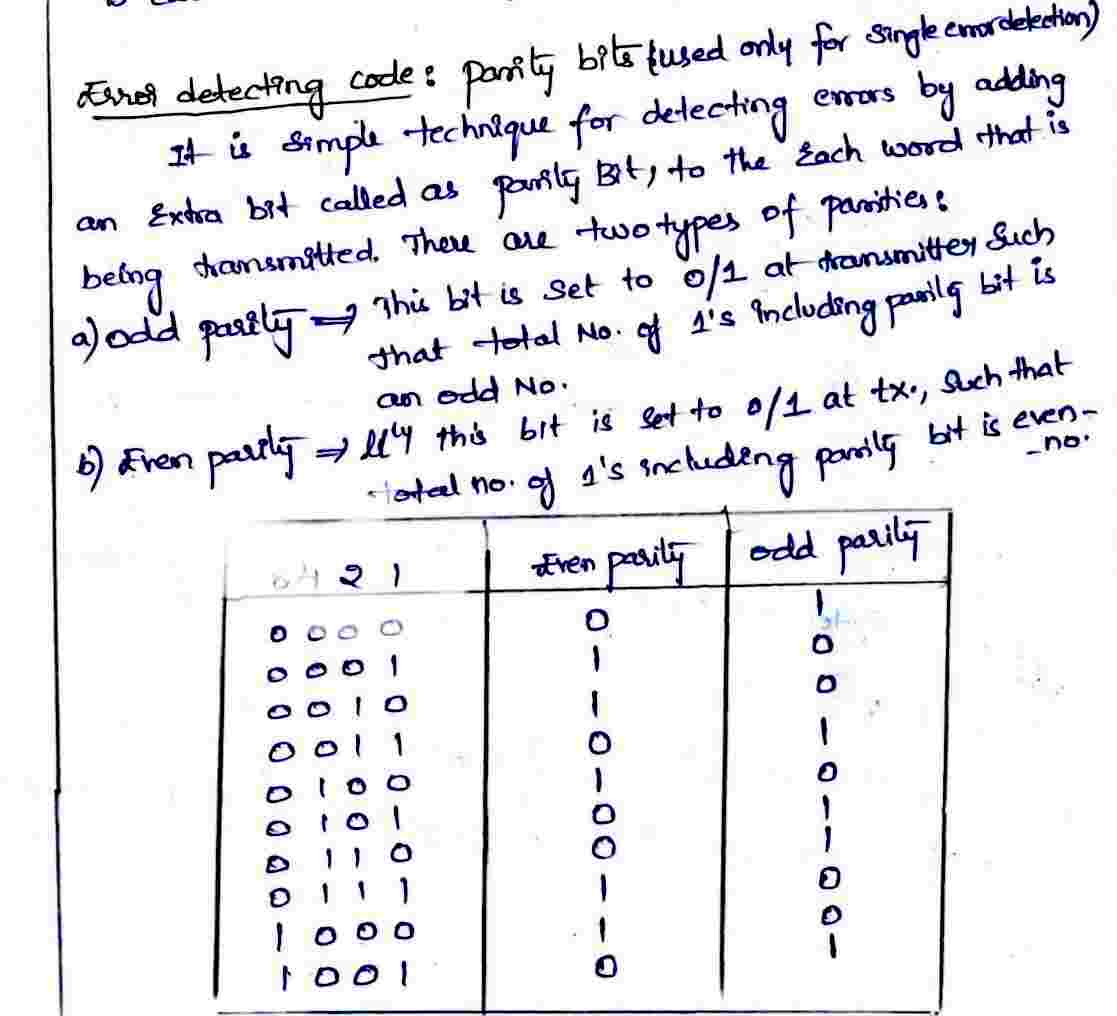 Error detecting code: parity bits {used only for single error detection)
It is simple technique for detecting errors by adding
an Extra bit called as parity Bit, to the Each word that is
being transmitted. There are two types of parities:
a) odd parity ⇒ This bit is set to 0/1 at transmitter such
that total No. of 1's including parity bit is
an odd No.
b) Even parity ⇒ lly this bit is set to 0/1 at tx., such that
total no. of 1's including parity bit is even-
-no.
4 2 1 Even parity odd parity
0 0 0 0 0 1
0 0 0 1 1 0
0 0 1 0 1 0
0 0 1 1 0 1
0 1 0 0 1 0
0 1 0 1 0 1
0 1 1 0 0 1
0 1 1 1 1 0
1 0 0 0 1 0
1 0 0 1 0 1